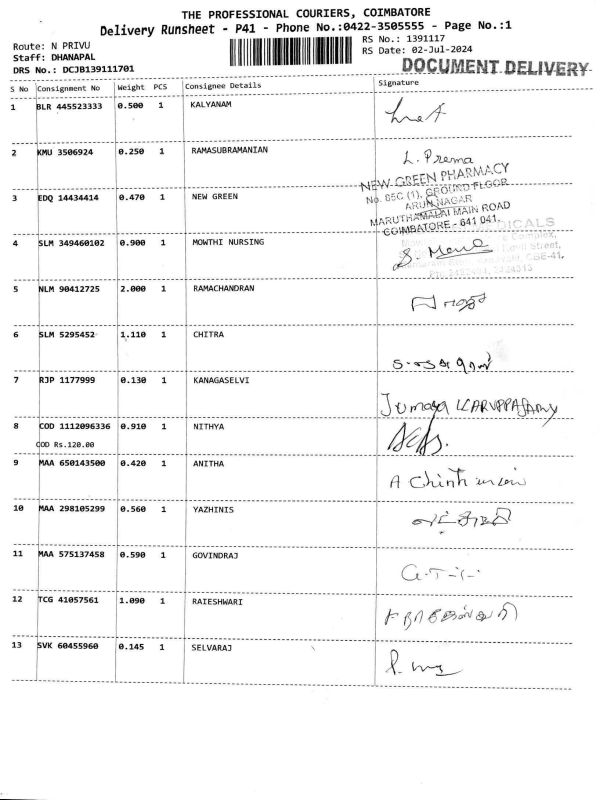 THE PROFESSIONAL COURIERS, COIMBATORE
Delivery Runsheet - P41 - Phone No.:0422-3505555 - Page No.:1
Route: N PRIVU
Staff: DHANAPAL
DRS No.: DCJB139111701
RS No.: 1391117
RS Date: 02-Jul-2024
DOCUMENT DELIVERY
S No Consignment No Weight PCS Consignee Details Signature
1 BLR 445523333 0.500 1 KALYANAM
2 KMU 3506924 0.250 1 RAMASUBRAMANIAN L. Prema
NEW GREEN PHARMACY
No. 85C (1), GROUND FLOOR
ARUN NAGAR
MARUTHAMALAI MAIN ROAD
COIMBATORE - 641 041.
3 EDQ 14434414 0.470 1 NEW GREEN
4 SLM 349460102 0.900 1 MOWTHI NURSING
5 NLM 90412725 2.000 1 RAMACHANDRAN
6 SLM 5295452 1.110 1 CHITRA
7 RJP 1177999 0.130 1 KANAGASELVI
8 COD 1112096336 0.910 1 NITHYA
COD Rs.120.00
9 MAA 650143500 0.420 1 ANITHA
10 MAA 298105299 0.560 1 YAZHINIS
11 MAA 575137458 0.590 1 GOVINDRAJ
12 TCG 41057561 1.090 1 RAIESHWARI
13 SVK 60455960 0.145 1 SELVARAJ